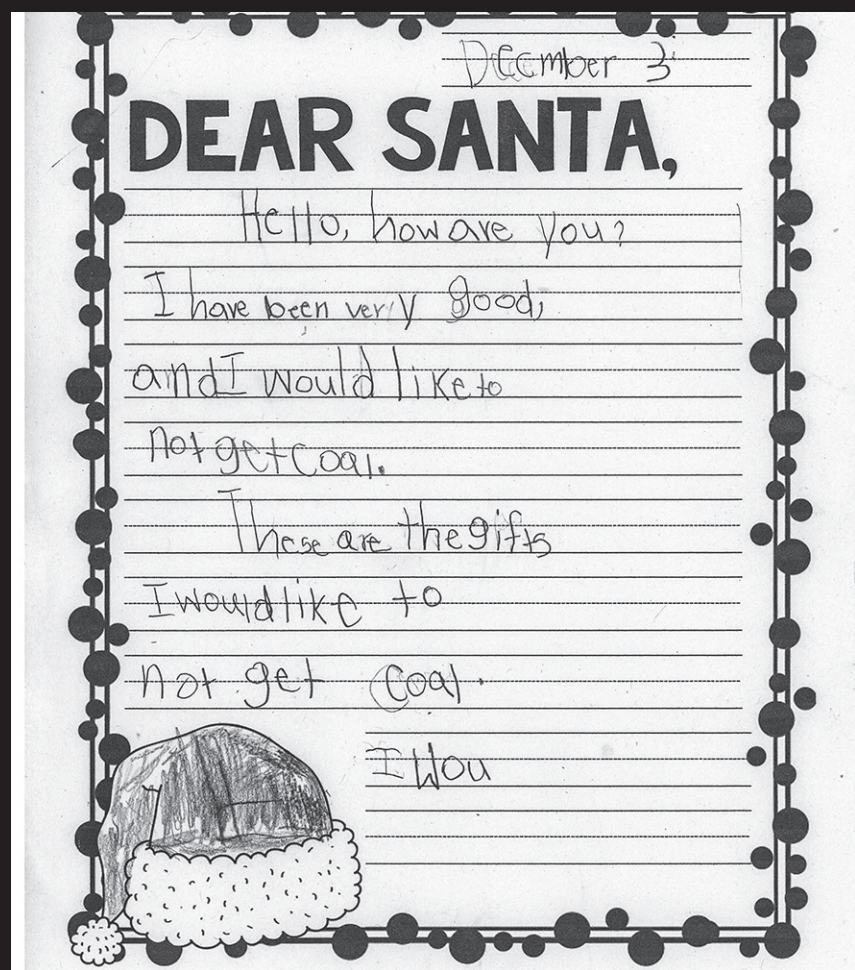 December 3
DEAR SANTA,
Hello, how are you?
I have been very good,
and I would like to
not get coal.
These are the gifts
I would like to
not get Coal.
I Wou